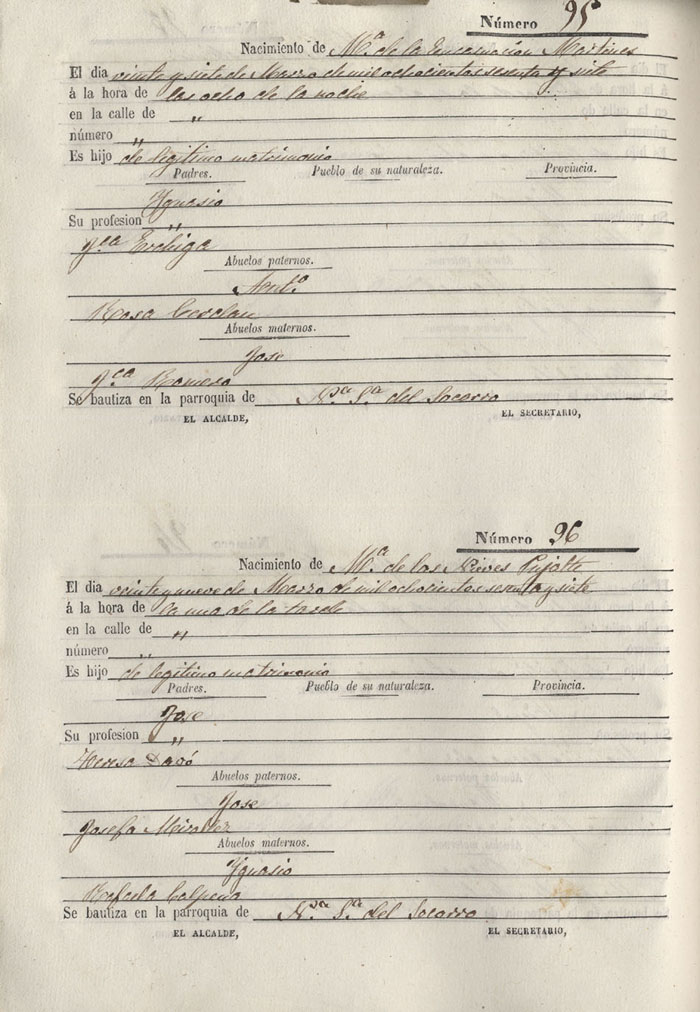 Número 95
Nacimiento de Mª. de la Encarnacion Martines
El dia veinte y siete de Marzo de mil ochocientos sesenta y siete
á la hora de las ocho de la noche
en la calle de "
número "
Es hijo de legitimo matrimonio
Padres. Pueblo de su naturaleza. Provincia.
Ygnasio
Su profesion "
Abuelos paternos.
Antº
Rosa
Abuelos maternos.
Jose
Fca Romero
Se bautiza en la parroquia de Nra Sra del Socorro
EL ALCALDE, EL SECRETARIO,
Número 96
Nacimiento de Mª. de las Nieves Pujalte
El dia veinte y nueve de Marzo de mil ochocientos sesenta y siete
á la hora de la una de la tarde
en la calle de "
número "
Es hijo de legitimo matrimonio
Padres. Pueblo de su naturaleza. Provincia.
Jose
Su profesion "
Teresa Davó
Abuelos paternos.
Jose
Josefa Miralles
Abuelos maternos.
Ygnasio
Rafaela Calpena
Se bautiza en la parroquia de Nra Sra del Socorro
EL ALCALDE, EL SECRETARIO,